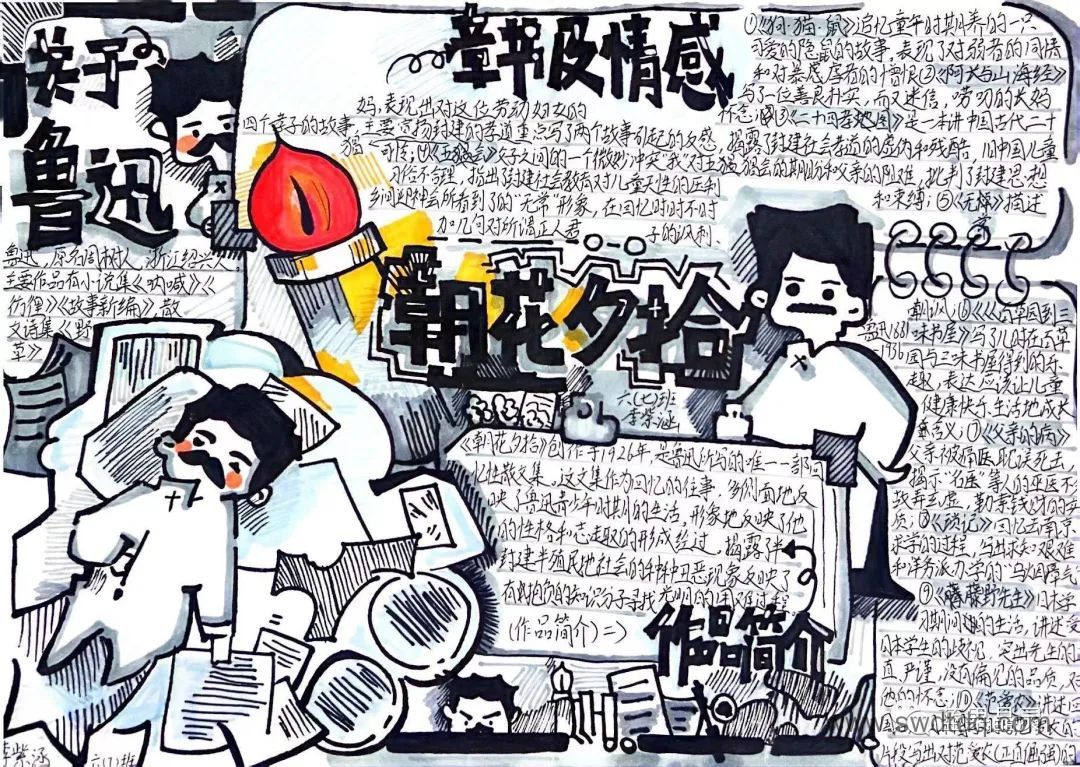 关于
鲁迅
鲁迅，原名周树人，浙江绍兴人，
主要作品有小说集《呐喊》《
彷徨》《故事新编》，散
文诗集《野
草》
章节及情感
①《狗·猫·鼠》追忆童年时期养的一只
可爱的隐鼠的故事，表现了对弱者的同情
和对暴虐者的憎恨②《阿长与山海经》
写了一位善良朴实，而又迷信，唠叨的长妈
妈，表现出对这位劳动妇女的
怀念；③《二十四孝地图》是一本讲中国古代二十
四个孝子的故事，主要宣扬封建的孝道重点写了两个故事引起的反感，揭露了封建社会孝道的虚伪和残酷，旧中国儿童
④《五猖会》父子之间的一个微妙冲突"我"对五猖会的期盼和父亲的阻难，批判了封建思想
习俗不合理，指出封建社会教育对儿童天性的压制和束缚；⑤《无常》描述
乡间迎神会所看到了的"无常"形象，在回忆时时不时
加几句对所谓正人君子的讽刺、
朝花夕拾
六(七)班
李紫涵
朝讽；⑥《百草园到三
味书屋》写了儿时在百草
园与三味书屋得到的乐
趣，表达应该让儿童
健康快乐、生活地成长
⑦《父亲的病》
父亲被庸医耽误死去
揭示"名医"等人的巫医不
故弄玄虚，勒索钱财的实
质；⑧《琐记》回忆去南京
求学的过程，写出求知艰难
和洋务派办学的"乌烟瘴气
⑨《藤野先生》日本学
习期间的生活，讲述受
日本学生的
直、严谨、没有偏见的品质，对
他的怀念；⑩《范爱农》讲述回
片段写出对范爱农(正直倔强)的
《朝花夕拾》创作于1926年，是鲁迅所写的唯一一部回
忆性散文集。这文集作为回忆的往事，多侧面地反
映了鲁迅青少年时期的生活，形象地反映了他
的性格和志趣的形成经过。揭露了半
封建半殖民地社会的种种丑恶现象反映了
有抱负的知识分子寻找光明的困难过程
(作品简介)=>
作品简介
李紫涵
六(7)班